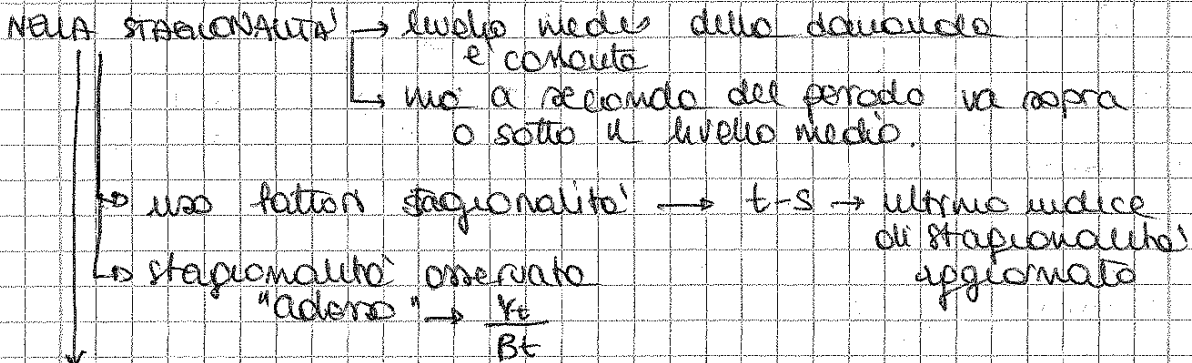 NELLA STAGIONALITA' → livello medio della domanda
è costante
↳ ma a seconda del periodo va sopra
o sotto il livello medio.
↳ uso fattori stagionalità → t-s → ultimo indice
di stagionalità
↳ stagionalità osservata aggiornato
"adesso" → Yt
Bt